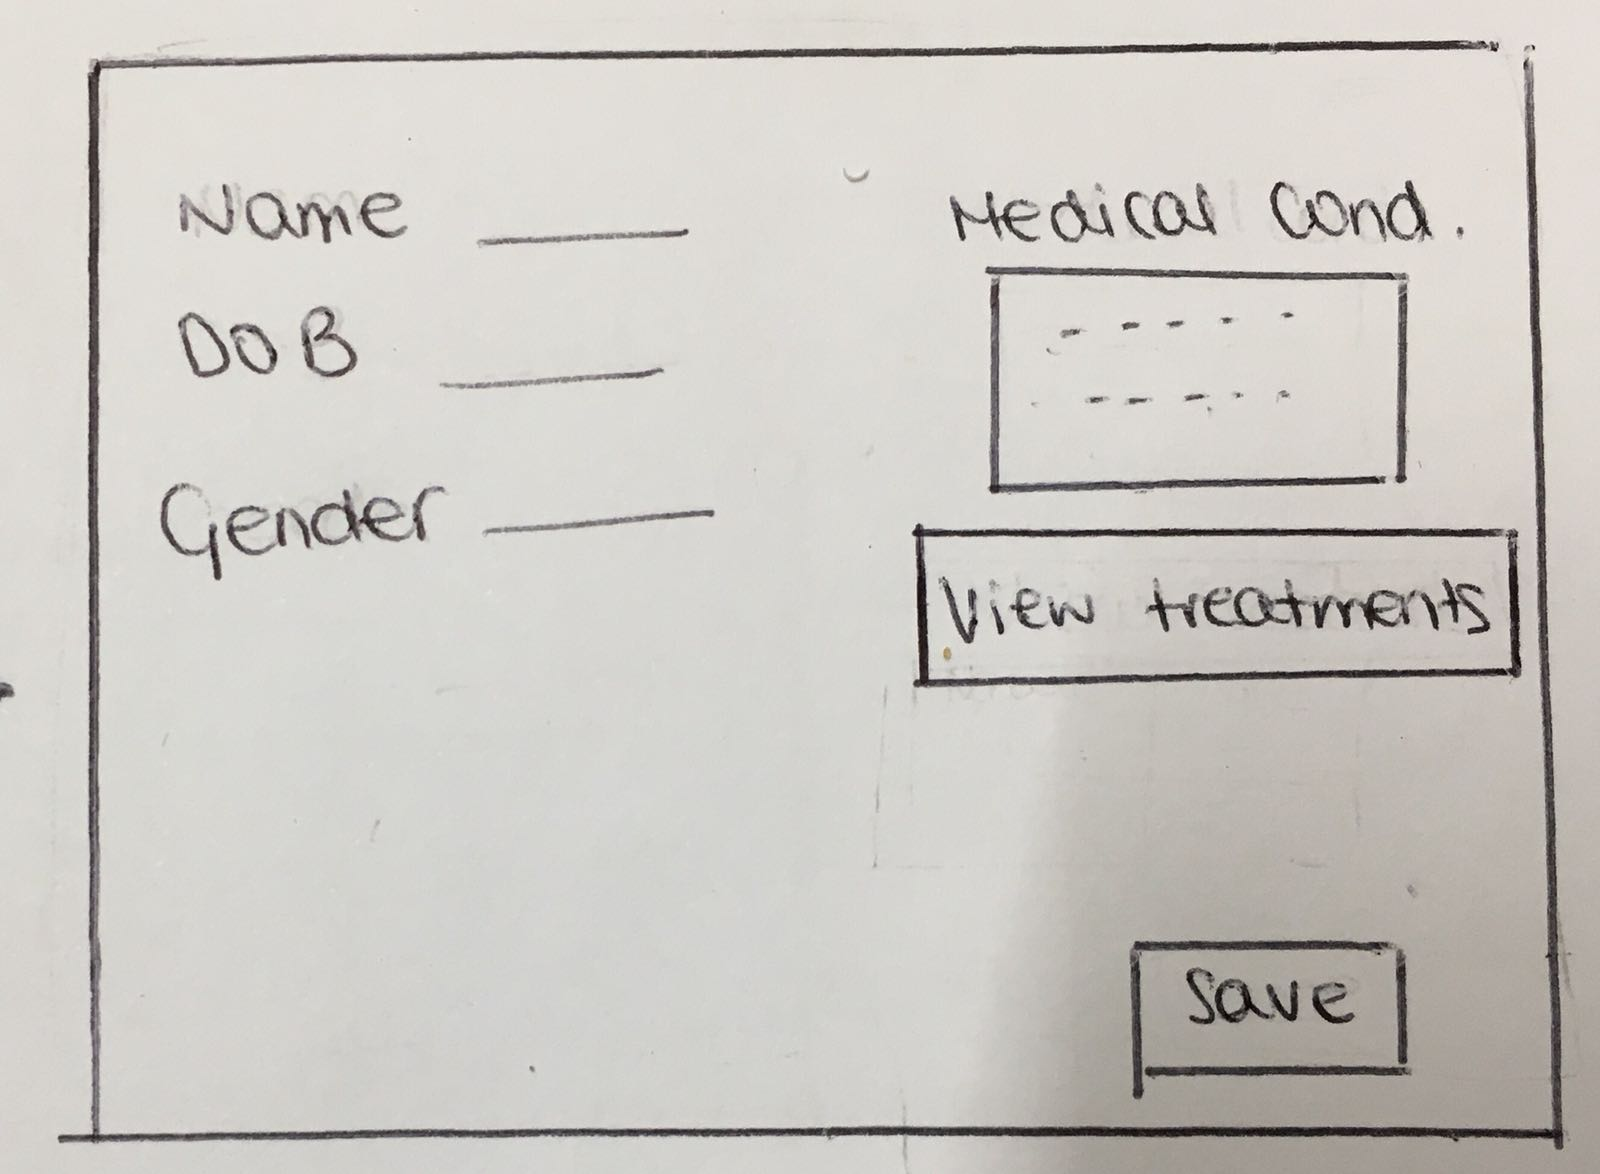 Name
DOB
Gender
Medical Cond.
View treatments
Save